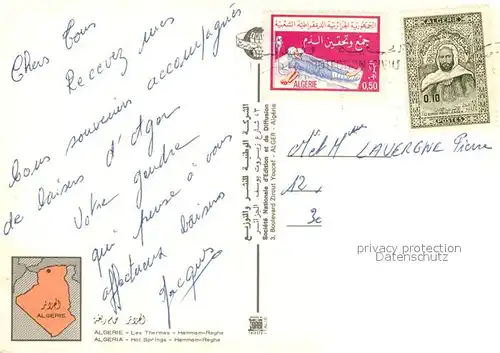 Chers Tous
Recevez mes
bons souvenirs accompagnés
de baisers d'
Votre gendre
qui pense à vous
affectueux baisers
Jacques
الجمهورية الجزائرية الديمقراطية الشعبية
جمع وتحقين الدم
ALGERIE
0,50
ALGERIE
0,10
POSTES
M et Mme LAVERGNE Pierre
12
3e
privacy protection
Datenschutz
الشركة الوطنية للنشر والتوزيع
Société Nationale d'Edition et de Diffusion
3, Boulevard Zirout Youcef - ALGER - Algérie
الجزائر
ALGERIE
ALGERIE - Les Thermes - Hammam-Righa
ALGERIA - Hot Springs - Hammam-Righa